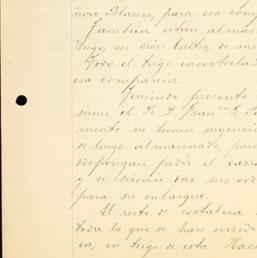 ñor Blanco, para esa comp
También estan almas
tugo, en cien bultos, de m
Todo el trigo encostalad
esa compañia.
Teniendo presente
sirme el Sr. D. Fran.co L.
mente no tienen urgencia
de luego almacenado, para
dispongan pedir el carro
y se sirvan dar sus ord
para su embarque.
El resto de costalera
toda la que se han servid
ca, en trigo de esta Haci